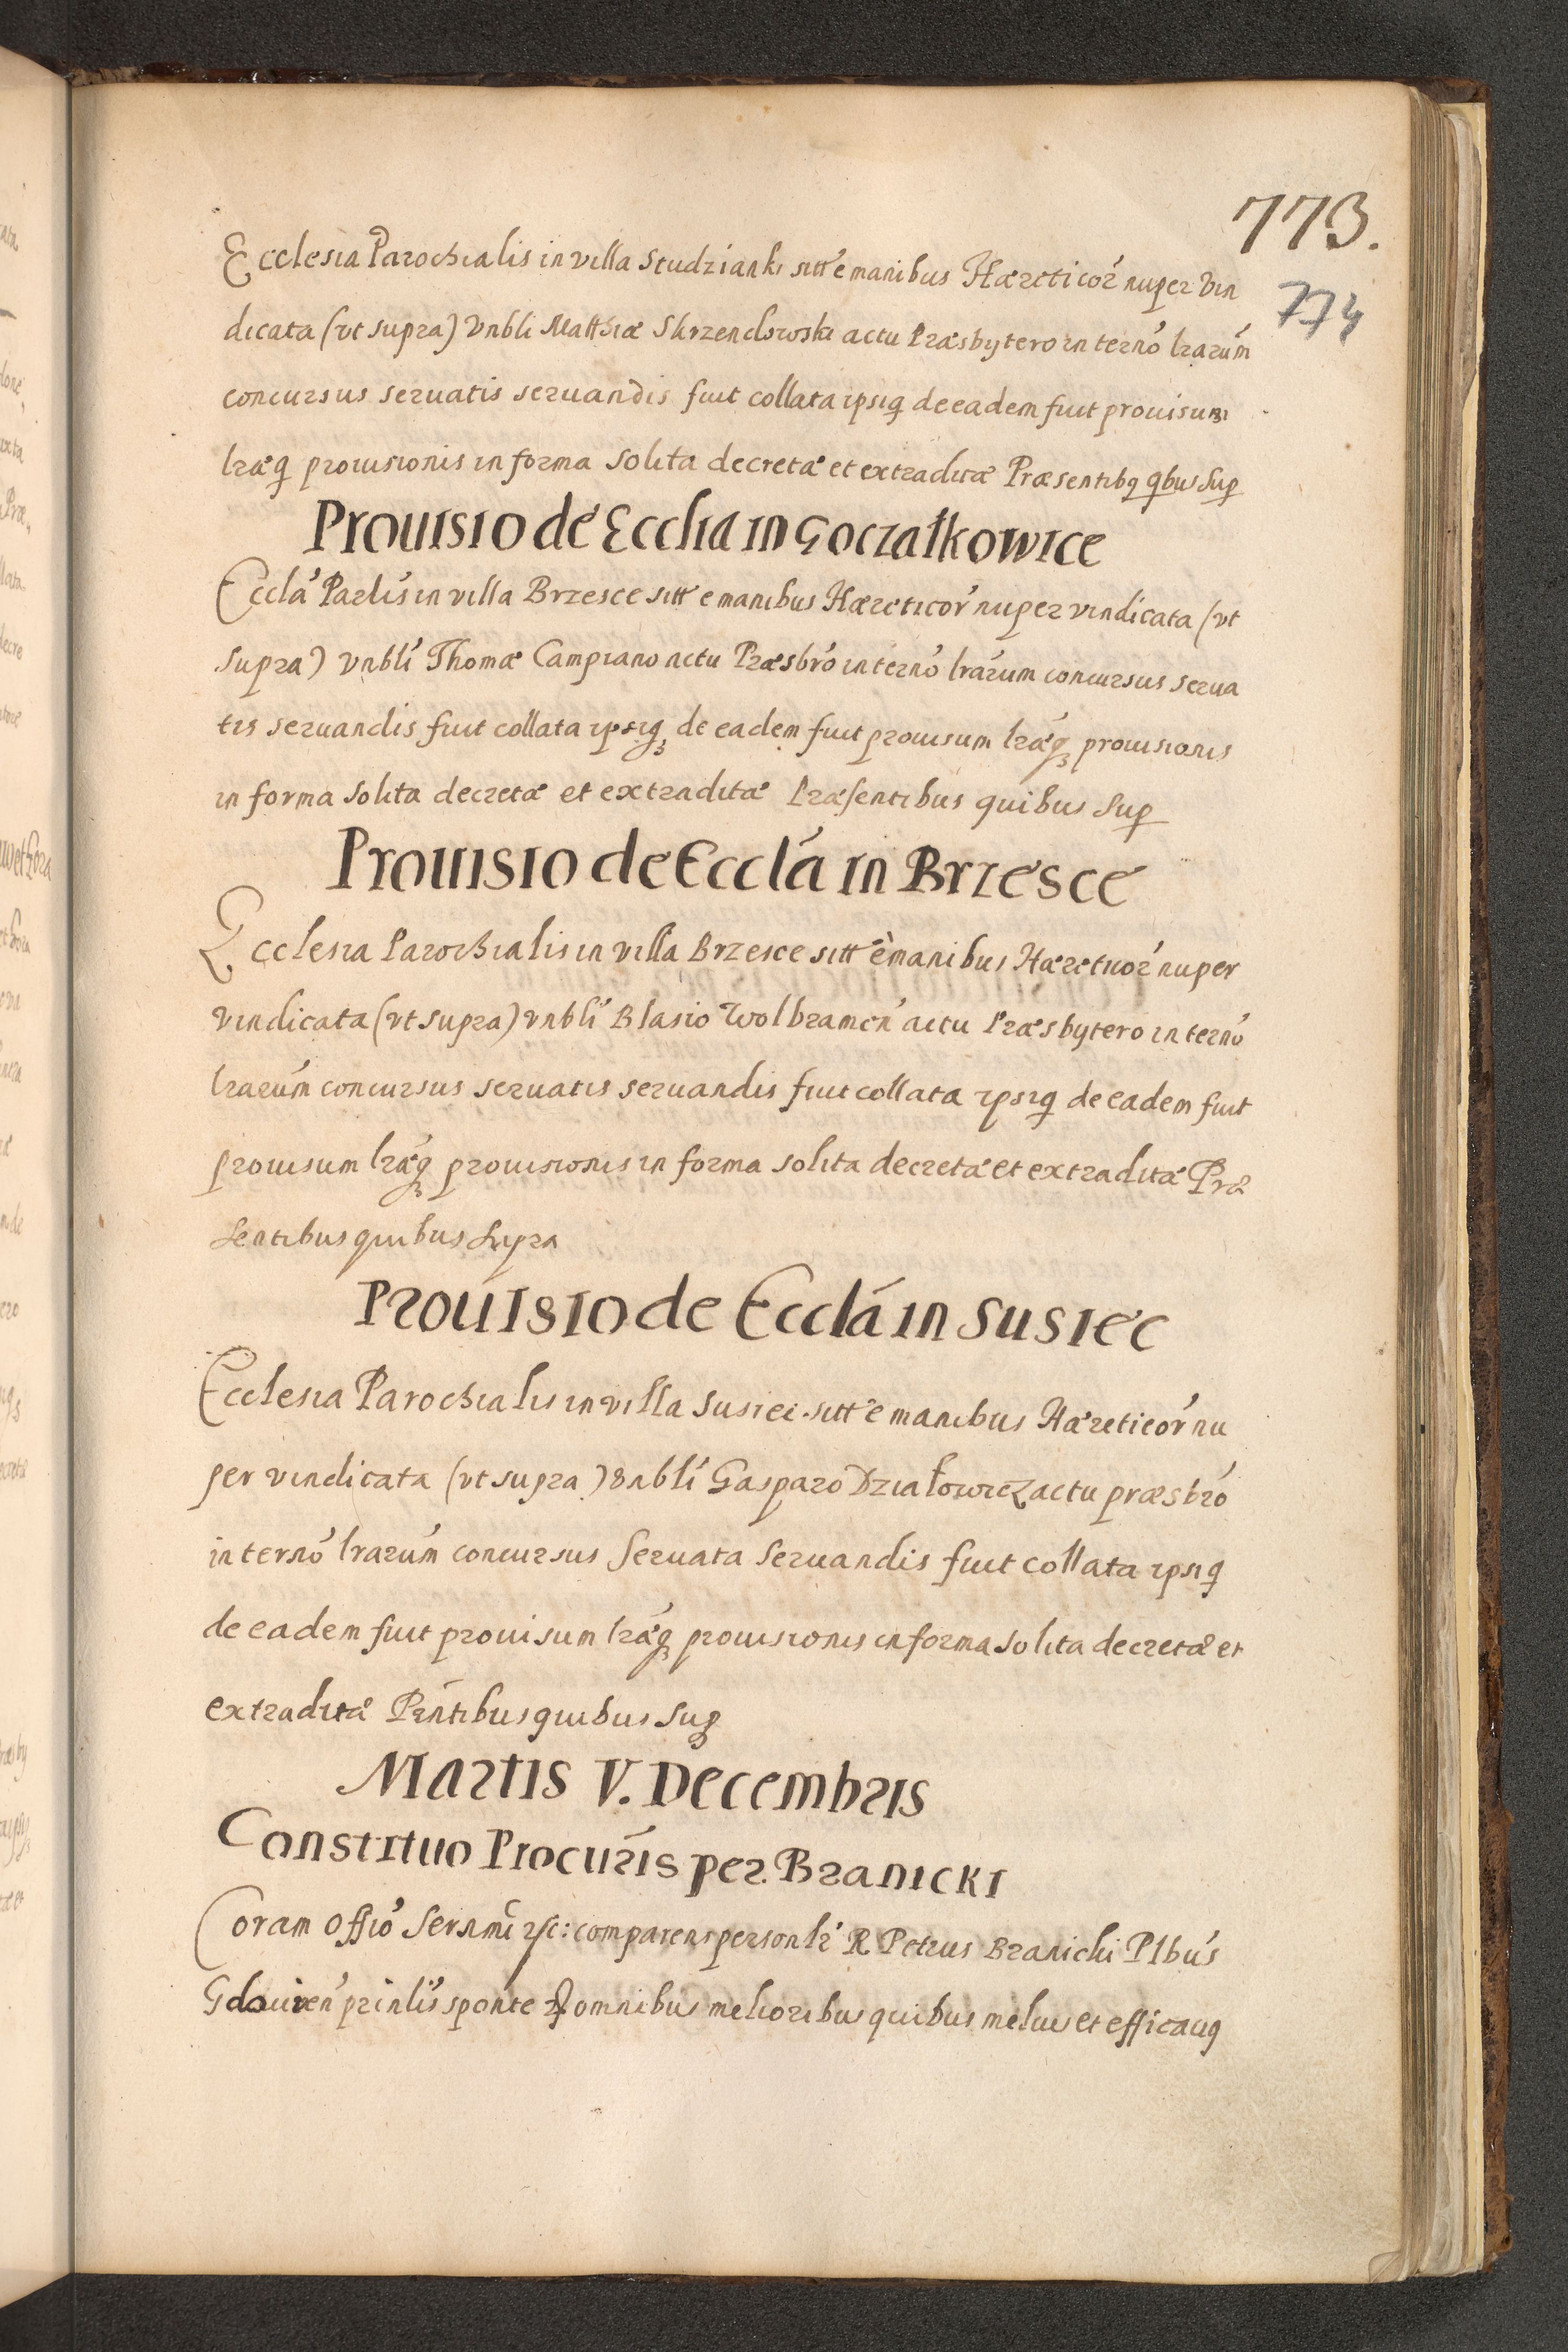 773.
774
Ecclesia Parochialis in villa Studzianki sitt e manibus Hæreticoŕ nuper vin
dicata (vt supra) Vnbli Matthiæ Skrzendowski actu Præsbytero in ternó lrarúm
concursus seruatis seruandis fuit collata ipsiq́ de eadem fuit prouisum
lræq́ prouisionis in forma solita decretæ et extraditæ Præsentibq qbus sup
Prouisio de Ecclia in Goczałkowice
Ecclá Parlís in villa Brzesce sitt e manibus Hæreticoŕ nuper vindicata (vt
supra) vnblí Thomæ Campiano actu Præsbró in ternó lrárum concursus serua
tis seruandis fuit collata ipsiq́ de eadem fuit prouisum lráeq́ prouisionis
in forma solita decretæ et extraditæ Præsentibus quibus sup
Prouisio de Ecclá in Brzesce
Ecclesia Parochialis in villa Brzesce sitt è manibus Hæreticoŕ nuper
vindicata (vt supra) vnblí Blasio Wolbramén actu Præsbytero in ternó
lrarúm concursus seruatis seruandis fuit collata ipsiq́ de eadem fuit
prouisum lráeq́ prouisionis in forma solita decretæ et extraditæ Præ
sentibus quibus supra
Prouisio de Ecclá in Susiec
Ecclesia Parochialis in villa Susiec sitt e manibus Hæreticoŕ nu
per vindicata (vt supra) Vnblí Gasparo Działowicz actu præsbró
in ternó lrarúm concursus seruata seruandis fuit collata ipsiq́
de eadem fuit prouisum lráeq́ prouisionis in forma solita decretæ et
extraditæ Pńtibus quibus sup
Martis V. Decembris
Constituo Procurís per Branicki
Coram Offió Sernmi comparens personlr R Petrus Branicki Plbús
Gdouień prinlís sponte omnibus melioribus quibus melius et efficaciq